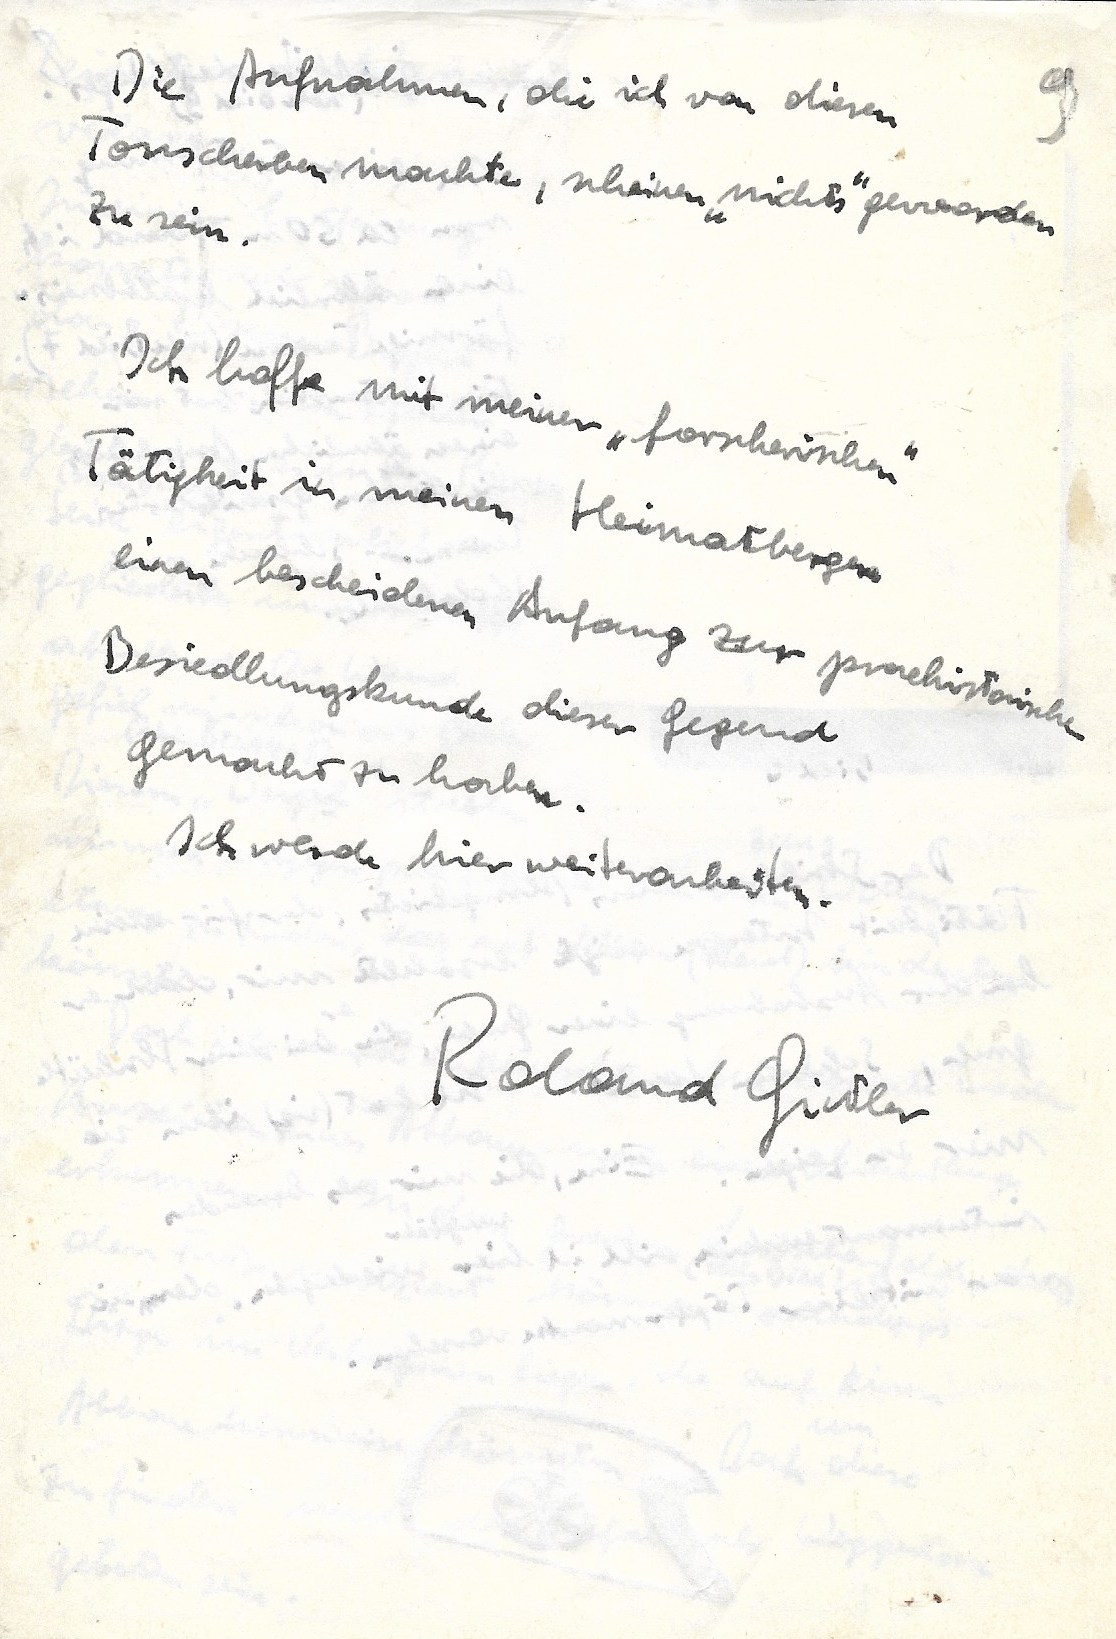 9)
Die Aufnahmen, die ich von diesen
Tonscherben machte, scheinen „nichts“ geworden
zu sein.
Ich hoffe mit meiner „forscherischen“
Tätigkeit in meinen Heimatbergen
einen bescheidenen Anfang zur praehistorischen
Besiedlungskunde dieser Gegend
gemacht zu haben.
Ich werde hier weiterarbeiten.
Roland Girtler